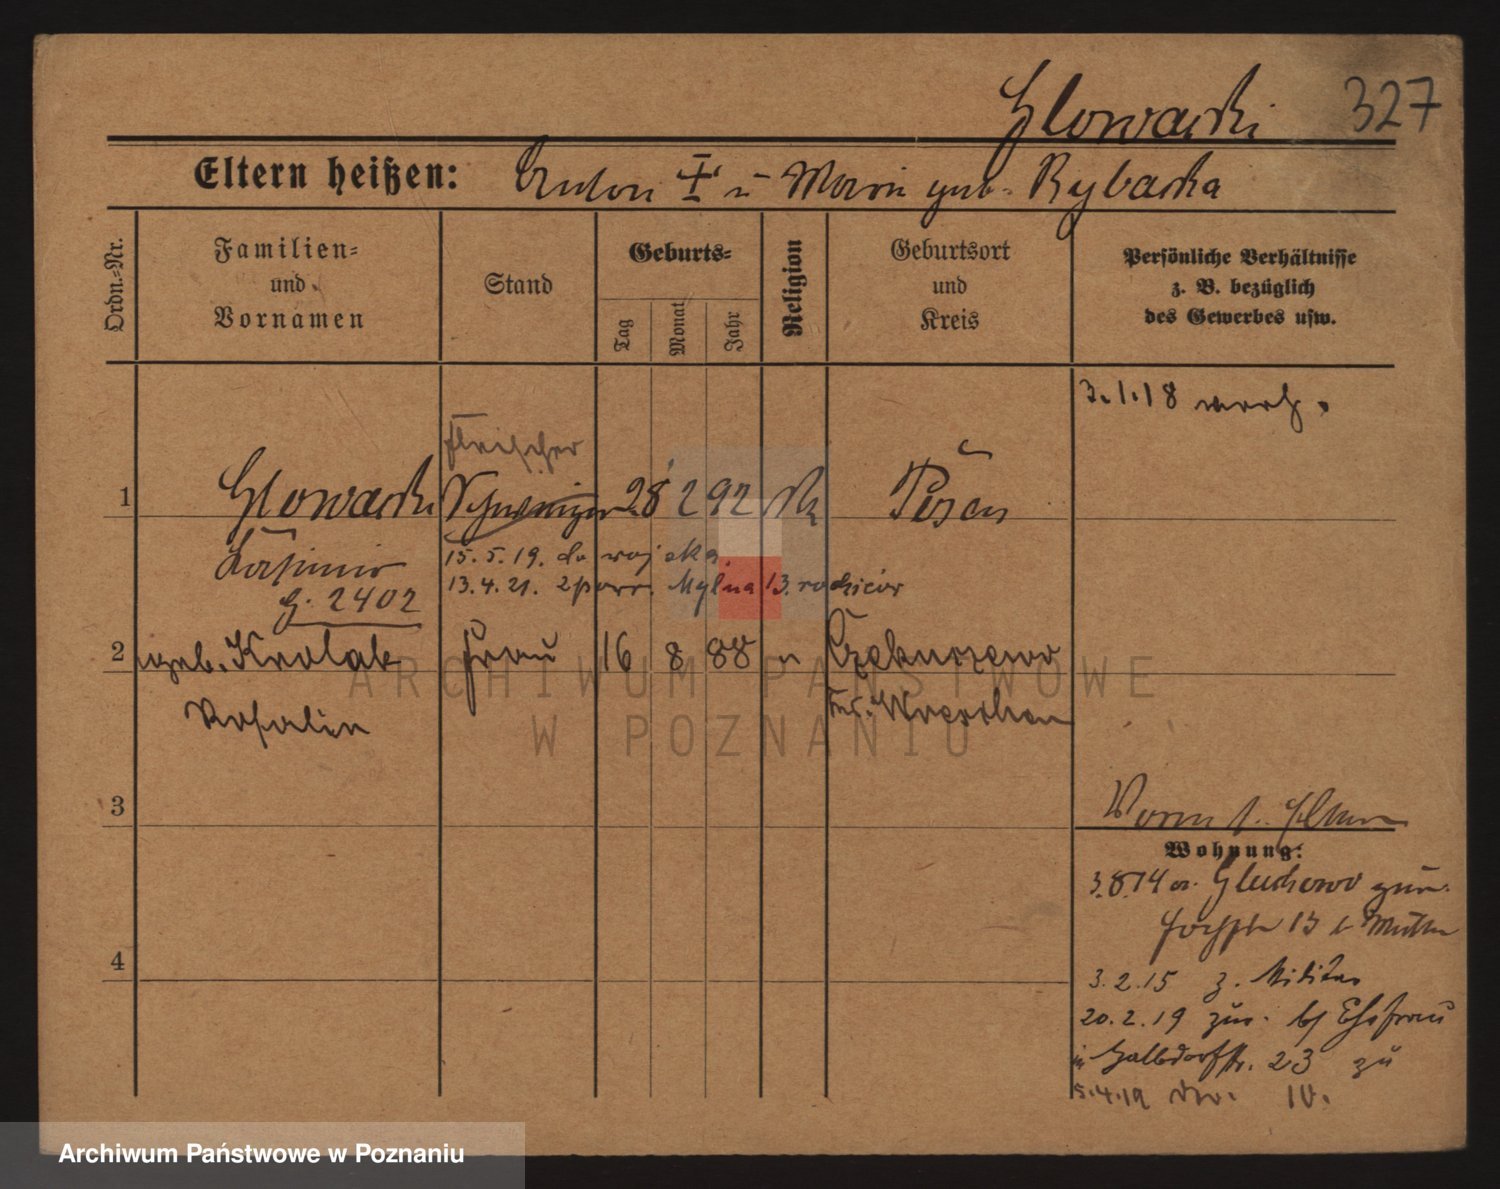 Glowacki 327
Eltern heißen: Anton † u Marie geb. Rybacka
Ordn.-Nr.
Familien-
und
Vornamen
Stand
Geburts-
Tag
Monat
Jahr
Religion
Geburtsort
und
Kreis
Persönliche Verhältnisse
z. B. bezüglich
des Gewerbes usw.
3.1.18 verh.
Fleischer
1 Glowacki 28 2 92 rk Posen
Kasimir
15.5.19. do wojska
G. 2402
13.4.21. z powr. Mylna 13. rodziców
2 geb. Krolak Frau 16 8 88 " 
Rosalie
Kr. Wreschen
3
Wohnung:
3.8.14 v. Gluchowo zur.
13 b Mutter
4
3.2.15 z. Militär
20.2.19 zur. b/ Ehefrau
in 23 zu
5.4.19 IV.
ARCHIWUM PAŃSTWOWE
W POZNANIU
Archiwum Państwowe w Poznaniu